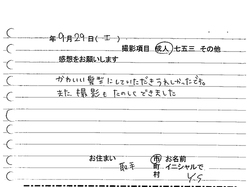 年9月29日(土)
撮影項目 成人 七五三 その他
感想をお願いします
かわいい髪型にしていただきうれしかったです。
また撮影もたのしくできました
お住まい 市 お名前
取手 町 イニシャルで
村 Y-S